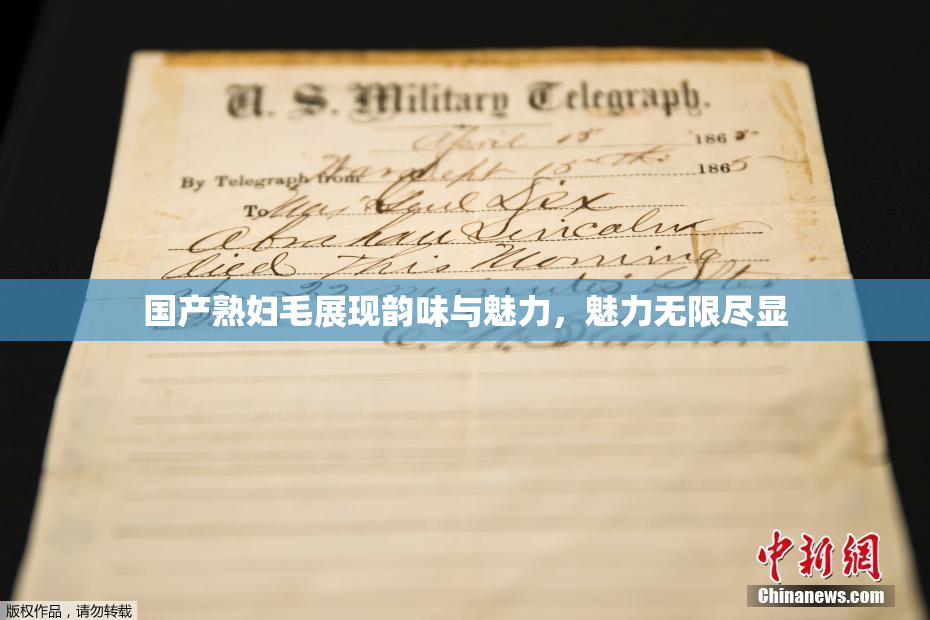 U. S. Military Telegraph.
April 15 1865
By Telegraph from War Dept 15th 1865
To Maj Genl Dix
Abraham Lincoln
died This Morning
22 minutes after
国产熟妇毛展现韵味与魅力，魅力无限尽显
E. M. Stanton
中新网
Chinanews.com
版权作品，请勿转载